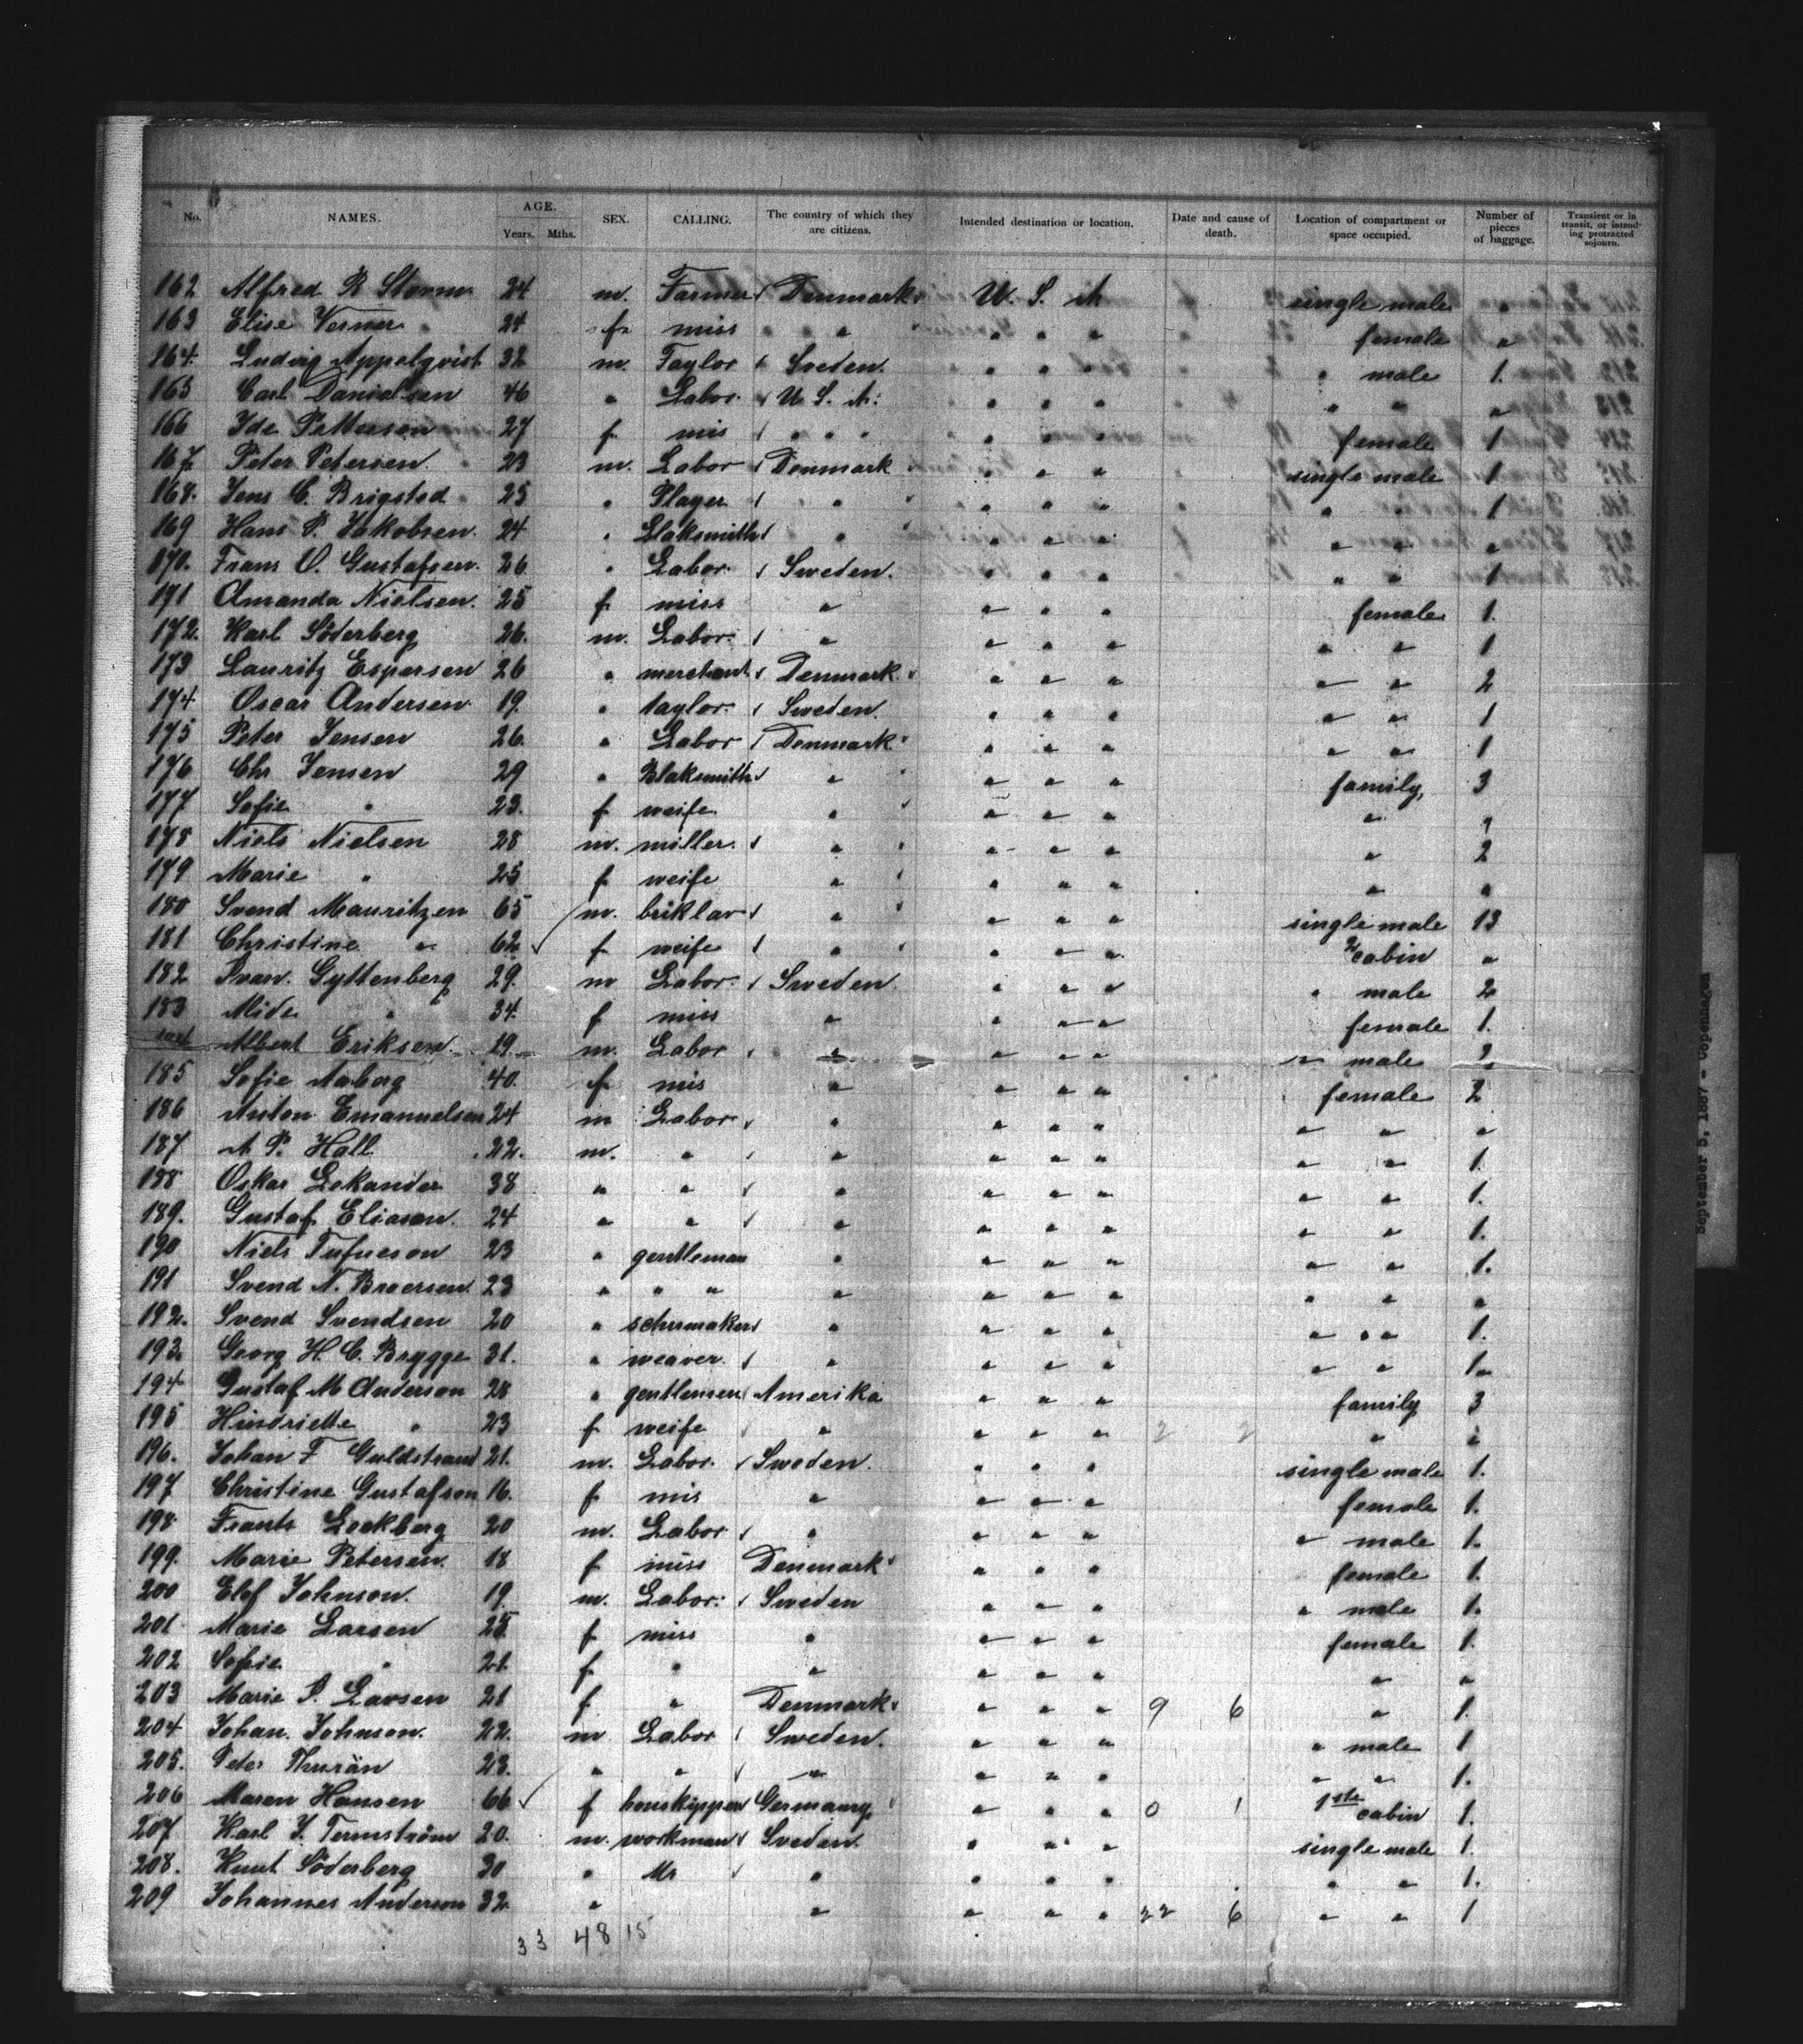 No. NAMES. AGE. Years. Mths. SEX. CALLING. The country of which they are citizens. Intended destination or location. Date and cause of death. Location of compartment or space occupied. Number of pieces of baggage. Transient or in transit, or intending protracted sojourn.
162 Alfred R Storm 24 m. Farmer Denmark U. S. A single male "
163 Elise Verner 24 f. miss " " " " " " female "
164. Ludvig Appelqvist 32 m. Taylor Sveden. " " " " male 1.
165 Carl Danielsen 46 " Labor. U. S. A. " " " " " "
166 Ide Pettersen 27 f. mis " " " " " " female 1
167. Peter Petersen. 23 m. Labor Denmark " " " single male 1
168. Jens C. Brigsted 25 " Player " " " " " " 1
169 Hans P. Jakobsen. 24 " Blaksmith " " " " " " "
170. Frans O. Gustafsen. 26 " Labor. Sweden. " " " " " 1
171 Amanda Nielsen. 25 f. miss " " " " female 1.
172. Karl Söderberg 26. m. Labor. " " " " " " 1
173 Lauritz Espersen 26 " merchant Denmark. " " " " " 2
174. Oscar Andersen 19. " taylor. Sweden. " " " " " 1
175 Peter Jensen 26. " Labor Denmark " " " " " 1
176 Chr Jensen 29 " Blaksmith " " " " family, 3
177 Sofie " 23. f weife " " " " " "
178 Niels Nielsen 28 m. miller. " " " " " 2
179 Marie " 25 f weife " " " " " "
180 Svend Mauritzen 65 m. briklar " " " " single male 13
181 Christine " 62 f weife " " " " 2 cabin "
182 Ivan. Gyttenberg 29. m Labor. Sweden. " " " " male 2
183 Mide " 34. f miss " " " " female 1.
184 Albert Eriksen. 19. m. Labor " " " " " male 2
185 Sofie Aaberg 40. f mis " " " " female 2
186 Anton Emanuelsen 24 m Labor " " " " " " "
187 A P. Hall 22. m. " " " " " " " 1.
188 Oskar Lekander 38 " " " " " " " " 1.
189. Gustaf Eliason. 24 " " " " " " " " 1.
190 Niels Tufveson 23 " gentleman " " " " " " 1.
191 Svend N. Broersen. 23 " " " " " " " " " "
192. Svend Svendsen 20 " schumaker " " " " " " 1.
193. Georg H. C. Brygge 31. " weaver. " " " " " " 1.
194 Gustaf M Anderson 28 " gentlemen Amerika " " " family 3
195 Hindriette " 23 f weife " " " " 2 2 " "
196. Johan F Guldstrand 21. m. Labor. Sweden. " " " single male 1.
197 Christine Gustafson 16. f mis " " " " female 1.
198 Frants Leckberg 20 m. Labor " " " " " male 1.
199. Marie Petersen. 18 f miss Denmark " " " female 1.
200 Elof Johnson. 19. m. Labor. Sweden " " " " male 1.
201 Marie Larsen 25. f miss " " " " female 1.
202 Sofie " 21. f " " " " " " "
203 Marie P. Larsen 21 f " Denmark " " " 9 6 " 1.
204 Johan. Johnson. 22. m Labor Sweden. " " " " male 1
205. Peter Thurän 23. " " " " " " " " 1.
206 Maren Hansen 66 f houskipper Germany " " " 0 1 1ste cabin 1.
207 Karl J. Termström 20. m. workman Sveden. " " " single male 1.
208. Knut Söderberg 30 " Mr " " " " " " 1.
209 Johannes Anderson 32. " " " " " 22 6 " " 1
33 48 15
September 5, 1887 - Copenhagen